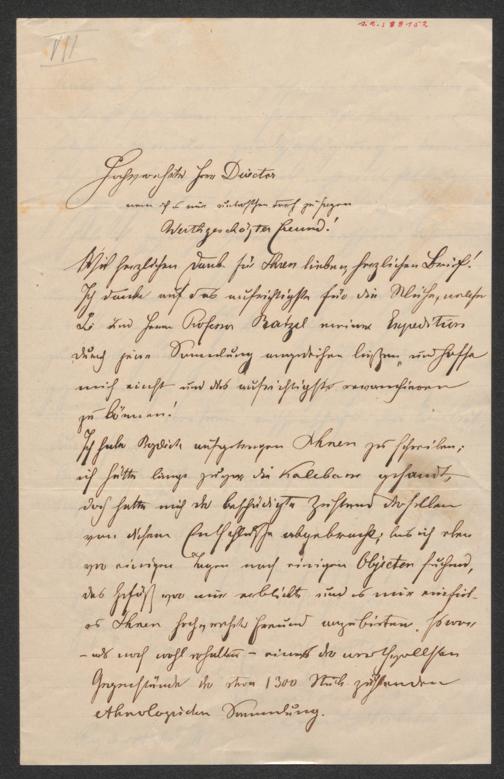 VII
Hochverehrter Herr Director
wenn ich mir unterstehen darf zu sagen
Werthgeschäzter Freund!
Mit herzlichen Dank für Ihren lieben, herzlichen Brief!
Ich danke auf das aufrichtigste für die Mühe, welche
Sie und Herr Professor Ratzel meiner Expedition
durch jene Sammlung angedeihen ließen, und hoffe
mich einst und das aufrichtigste revanchieren
zu können!
Ich habe aufgetragen Ihnen zu schreiben;
ich hätte lange die Kalebasse gesandt,
doch hatte mich der beschädigte Zustand derselben
von diesem Entschlusse abgebracht; bis ich eben
vor einigen Tagen nach einigen Objecten suchend,
das Gefäß vor mir erblickte und es mir einfiel
es Ihnen hochverehrter Freund anzubieten. Es war
- als noch wohl erhalten - eines der werthvollsten
Gegenstände der etwa 1300 Stück zählenden
ethnologischen Sammlung.